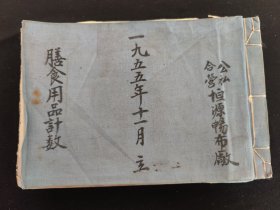 公私
合营恒源畅布廠
一九五五年十一月 立
膳食用品計数